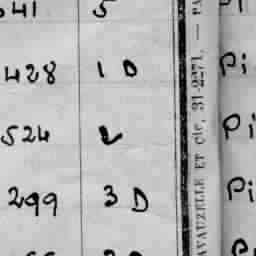 541 5
428 10 Pi
524 2 Pi
299 3 D Pi
AVAUZELLE ET Cie, 31-2271. — PA